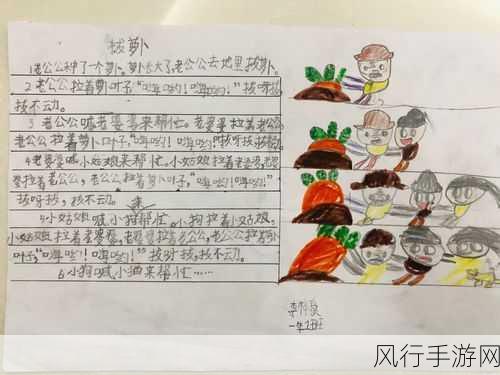 拔萝卜
1老公公种了一个萝卜。萝卜长大了,老公公去地里拔萝卜。
2老公公拉着萝卜叶子,“嗨哟!嗨哟!”拔呀拔,
拔不动。
3老公公喊老婆婆来帮忙。老婆婆拉着老公公,
老公公拉着萝卜叶子,“嗨哟!嗨哟!”拔呀拔,拔不动
4老婆婆喊小姑娘来帮忙。小姑娘拉着老婆婆,老婆
婆拉着老公公,老公公拉着萝卜叶子,“嗨哟!嗨哟!”
拔呀拔,拔不动。
5小姑娘喊小狗帮忙。小狗拉着小姑娘,
小姑娘拉着老婆婆,老婆婆拉着老公公,老公公拉萝卜
叶子,“嗨哟!嗨哟!”拔呀拔,拔不动。
来
6小狗喊小猫来帮忙……
李
一年2班
风行手游网